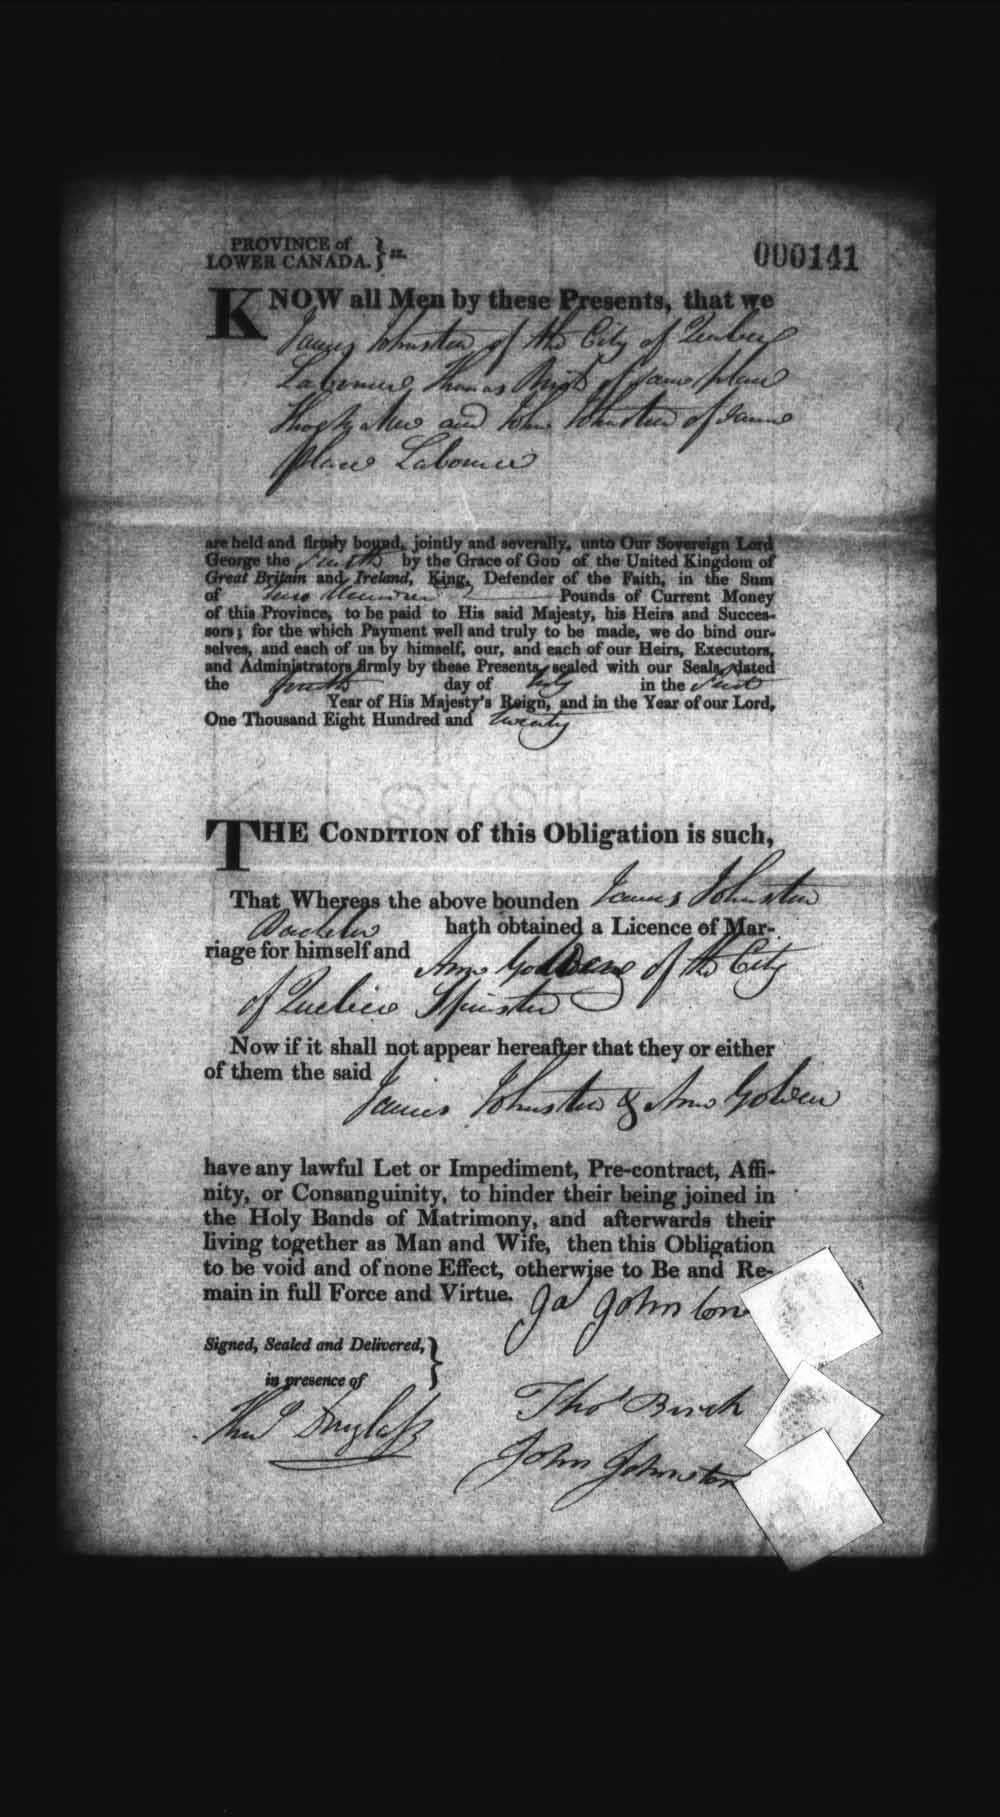 PROVINCE of
LOWER CANADA. } ss.
000141
KNOW all Men by these Presents, that we
James Johnston of the City of Quebec
Labourer, Thomas of same place
and John Johnston of same
place Labourer
are held and firmly bound, jointly and severally, unto Our Sovereign Lord
George the Fourth by the Grace of GOD of the United Kingdom of
Great Britain and Ireland, King, Defender of the Faith, in the Sum
of Two Hundred Pounds of Current Money
of this Province, to be paid to His said Majesty, his Heirs and Succes-
sors; for the which Payment well and truly to be made, we do bind our-
selves, and each of us by himself, our, and each of our Heirs, Executors,
and Administrators firmly by these Presents, sealed with our Seals, dated
the fourth day of July in the First
Year of His Majesty's Reign, and in the Year of our Lord,
One Thousand Eight Hundred and twenty
THE CONDITION of this Obligation is such,
That Whereas the above bounden James Johnston
Bachelor hath obtained a Licence of Mar-
riage for himself and Ann Golden of the City
of Quebec Spinster
Now if it shall not appear hereafter that they or either
of them the said
James Johnston & Ann Golden
have any lawful Let or Impediment, Pre-contract, Affi-
nity, or Consanguinity, to hinder their being joined in
the Holy Bands of Matrimony, and afterwards their
living together as Man and Wife, then this Obligation
to be void and of none Effect, otherwise to Be and Re-
main in full Force and Virtue.
Ja Johnston
Signed, Sealed and Delivered, }
in presence of
Thos Birch
Thos Douglass
John Johnston